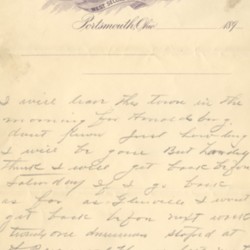 Portsmouth, Ohio 189
I will leave this town in the
morning for
dont know just how long
I will be gone But
think I will get back before
Saturday if I go back
as far as I wont
get back before next week
twenty one drummers stoped at